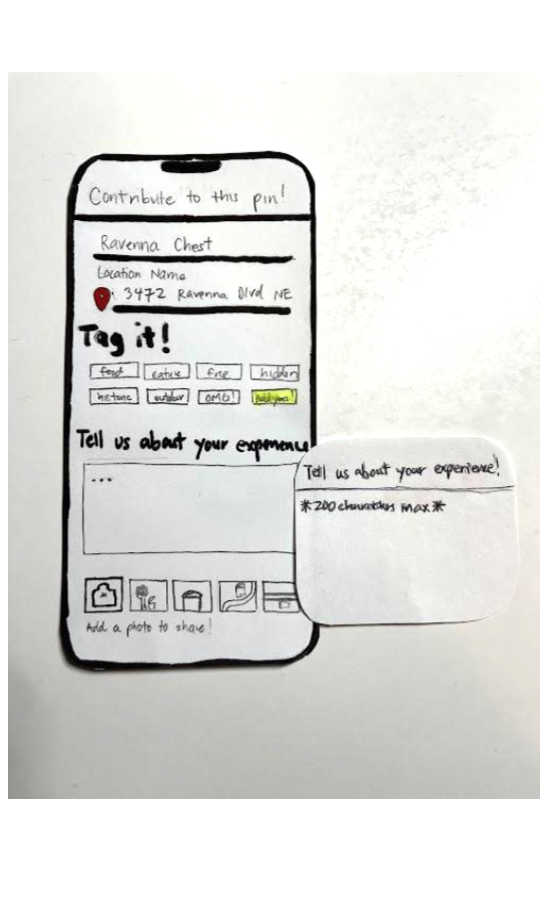 Contribute to this pin!
Ravenna Chest
Location Name
3472 Ravenna Blvd NE
Tag it!
food nature free hidden
historic outdoor OMG!
Tell us about your experience
...
Add a photo to share!
Tell us about your experience!
*200 characters max*